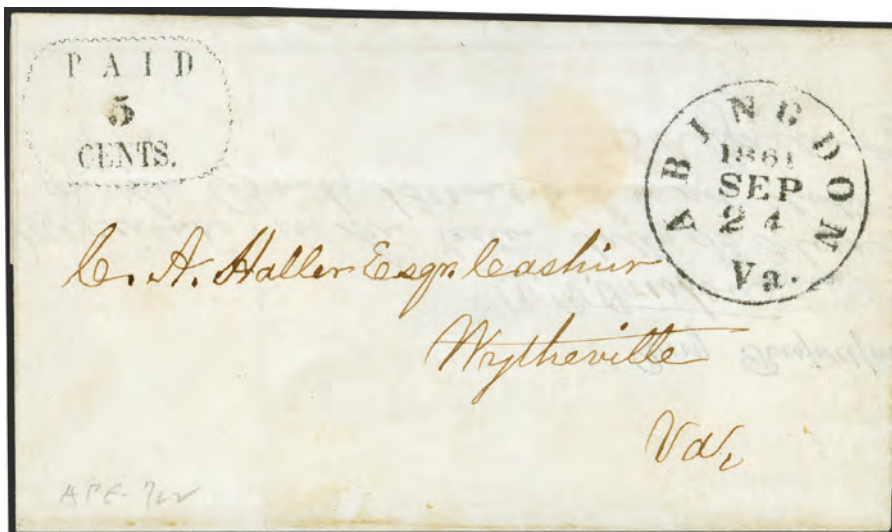 PAID
5
CENTS.
ABINGDON
1861
SEP
24
Va.
C. A. Haller Esqr. Cashier
Wytheville
Va,